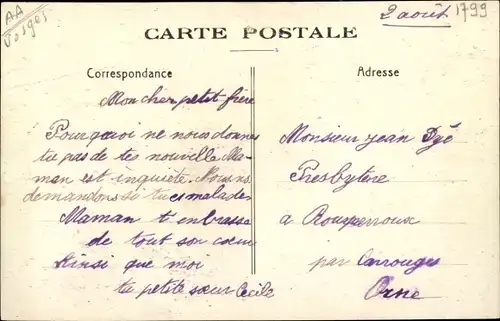 AA
Vosges
2 août
1799
CARTE POSTALE
Correspondance
Mon cher petit frère
Pourquoi ne nous donnes
tu pas de tes nouvelle Ma-
man est inquiète. Nous ns
demandons si tu es malade
Maman t'enbrasse
de tout son cœur
Ainsi que moi
ta petite sœur Cecile
Adresse
Monsieur Jean
Presbytère
a Rouperroux
par Carrouges
Orne